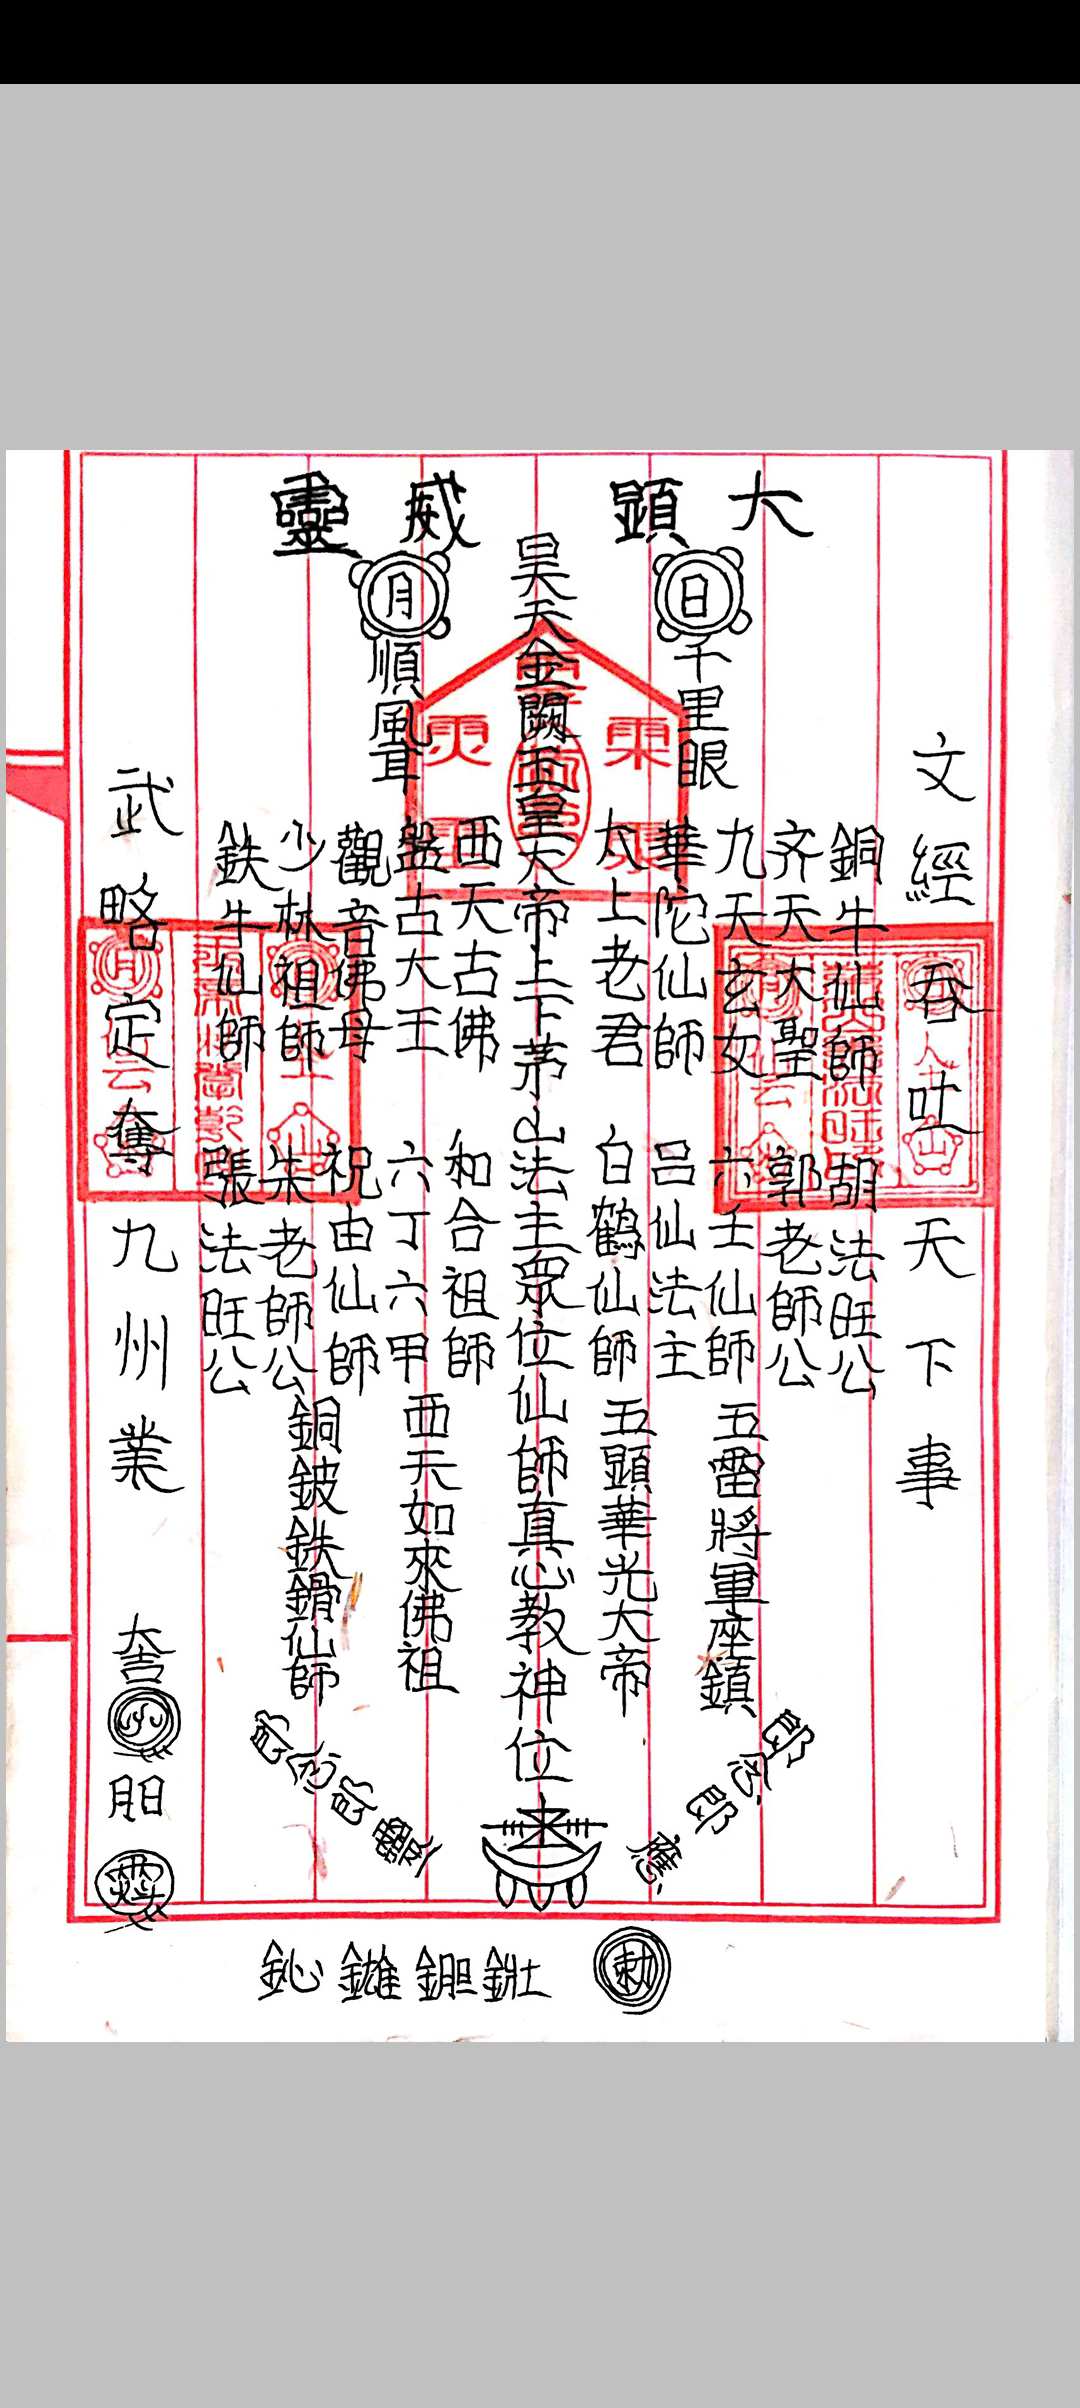 大顯威靈
日
月
千里眼
順風耳
昊天金闕玉皇大帝上下茅山法主眾位仙師真心教神位
文經吞吐天下事
銅牛仙師
胡法旺公
齐天大聖
郭老師公
九天玄女
六壬仙師
華陀仙師
呂仙法主
太上老君
白鶴仙師
五雷將軍座鎮
五顯華光大帝
西天古佛
和合祖師
盤古大王
六丁六甲
觀音佛母
祝由仙師
少林祖師
朱老師公
鉄牛仙師
張法旺公
西天如來佛祖
銅鈹鉄鎖仙師
武略定奪九州業
應
靈
勅